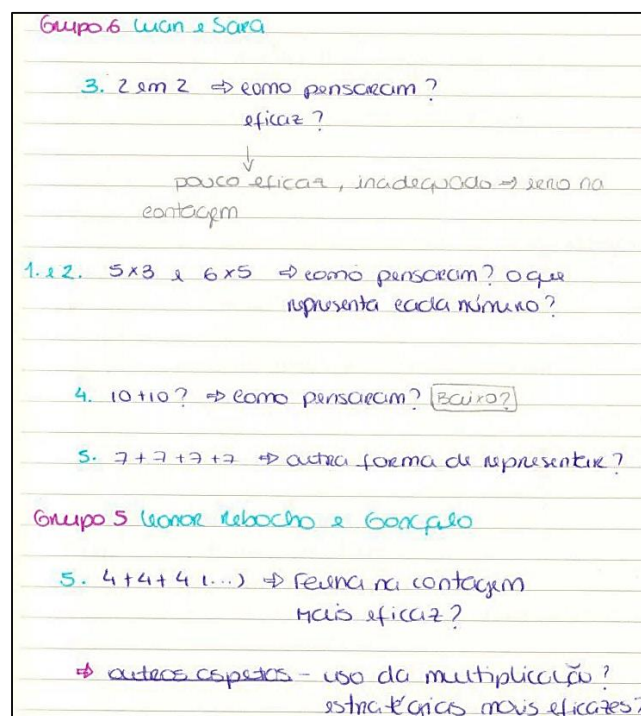 Grupo 6 Luan e Sara
3. 2 em 2 ⇒ como pensaram?
eficaz?
↓
pouco eficaz, inadequado ⇒ erro na
contagem
1. e 2. 5×3 e 6×5 ⇒ como pensaram? o que
representa cada número?
4. 10+10? ⇒ como pensaram? Bairo?
5. 7+7+7+7 ⇒ outra forma de representar?
Grupo 5 Leonor Rebocho e Gonçalo
5. 4+4+4 (...) ⇒ Falha na contagem
Mais eficaz?
⇒ outros aspetos - uso da multiplicação?
estratégias mais eficazes?